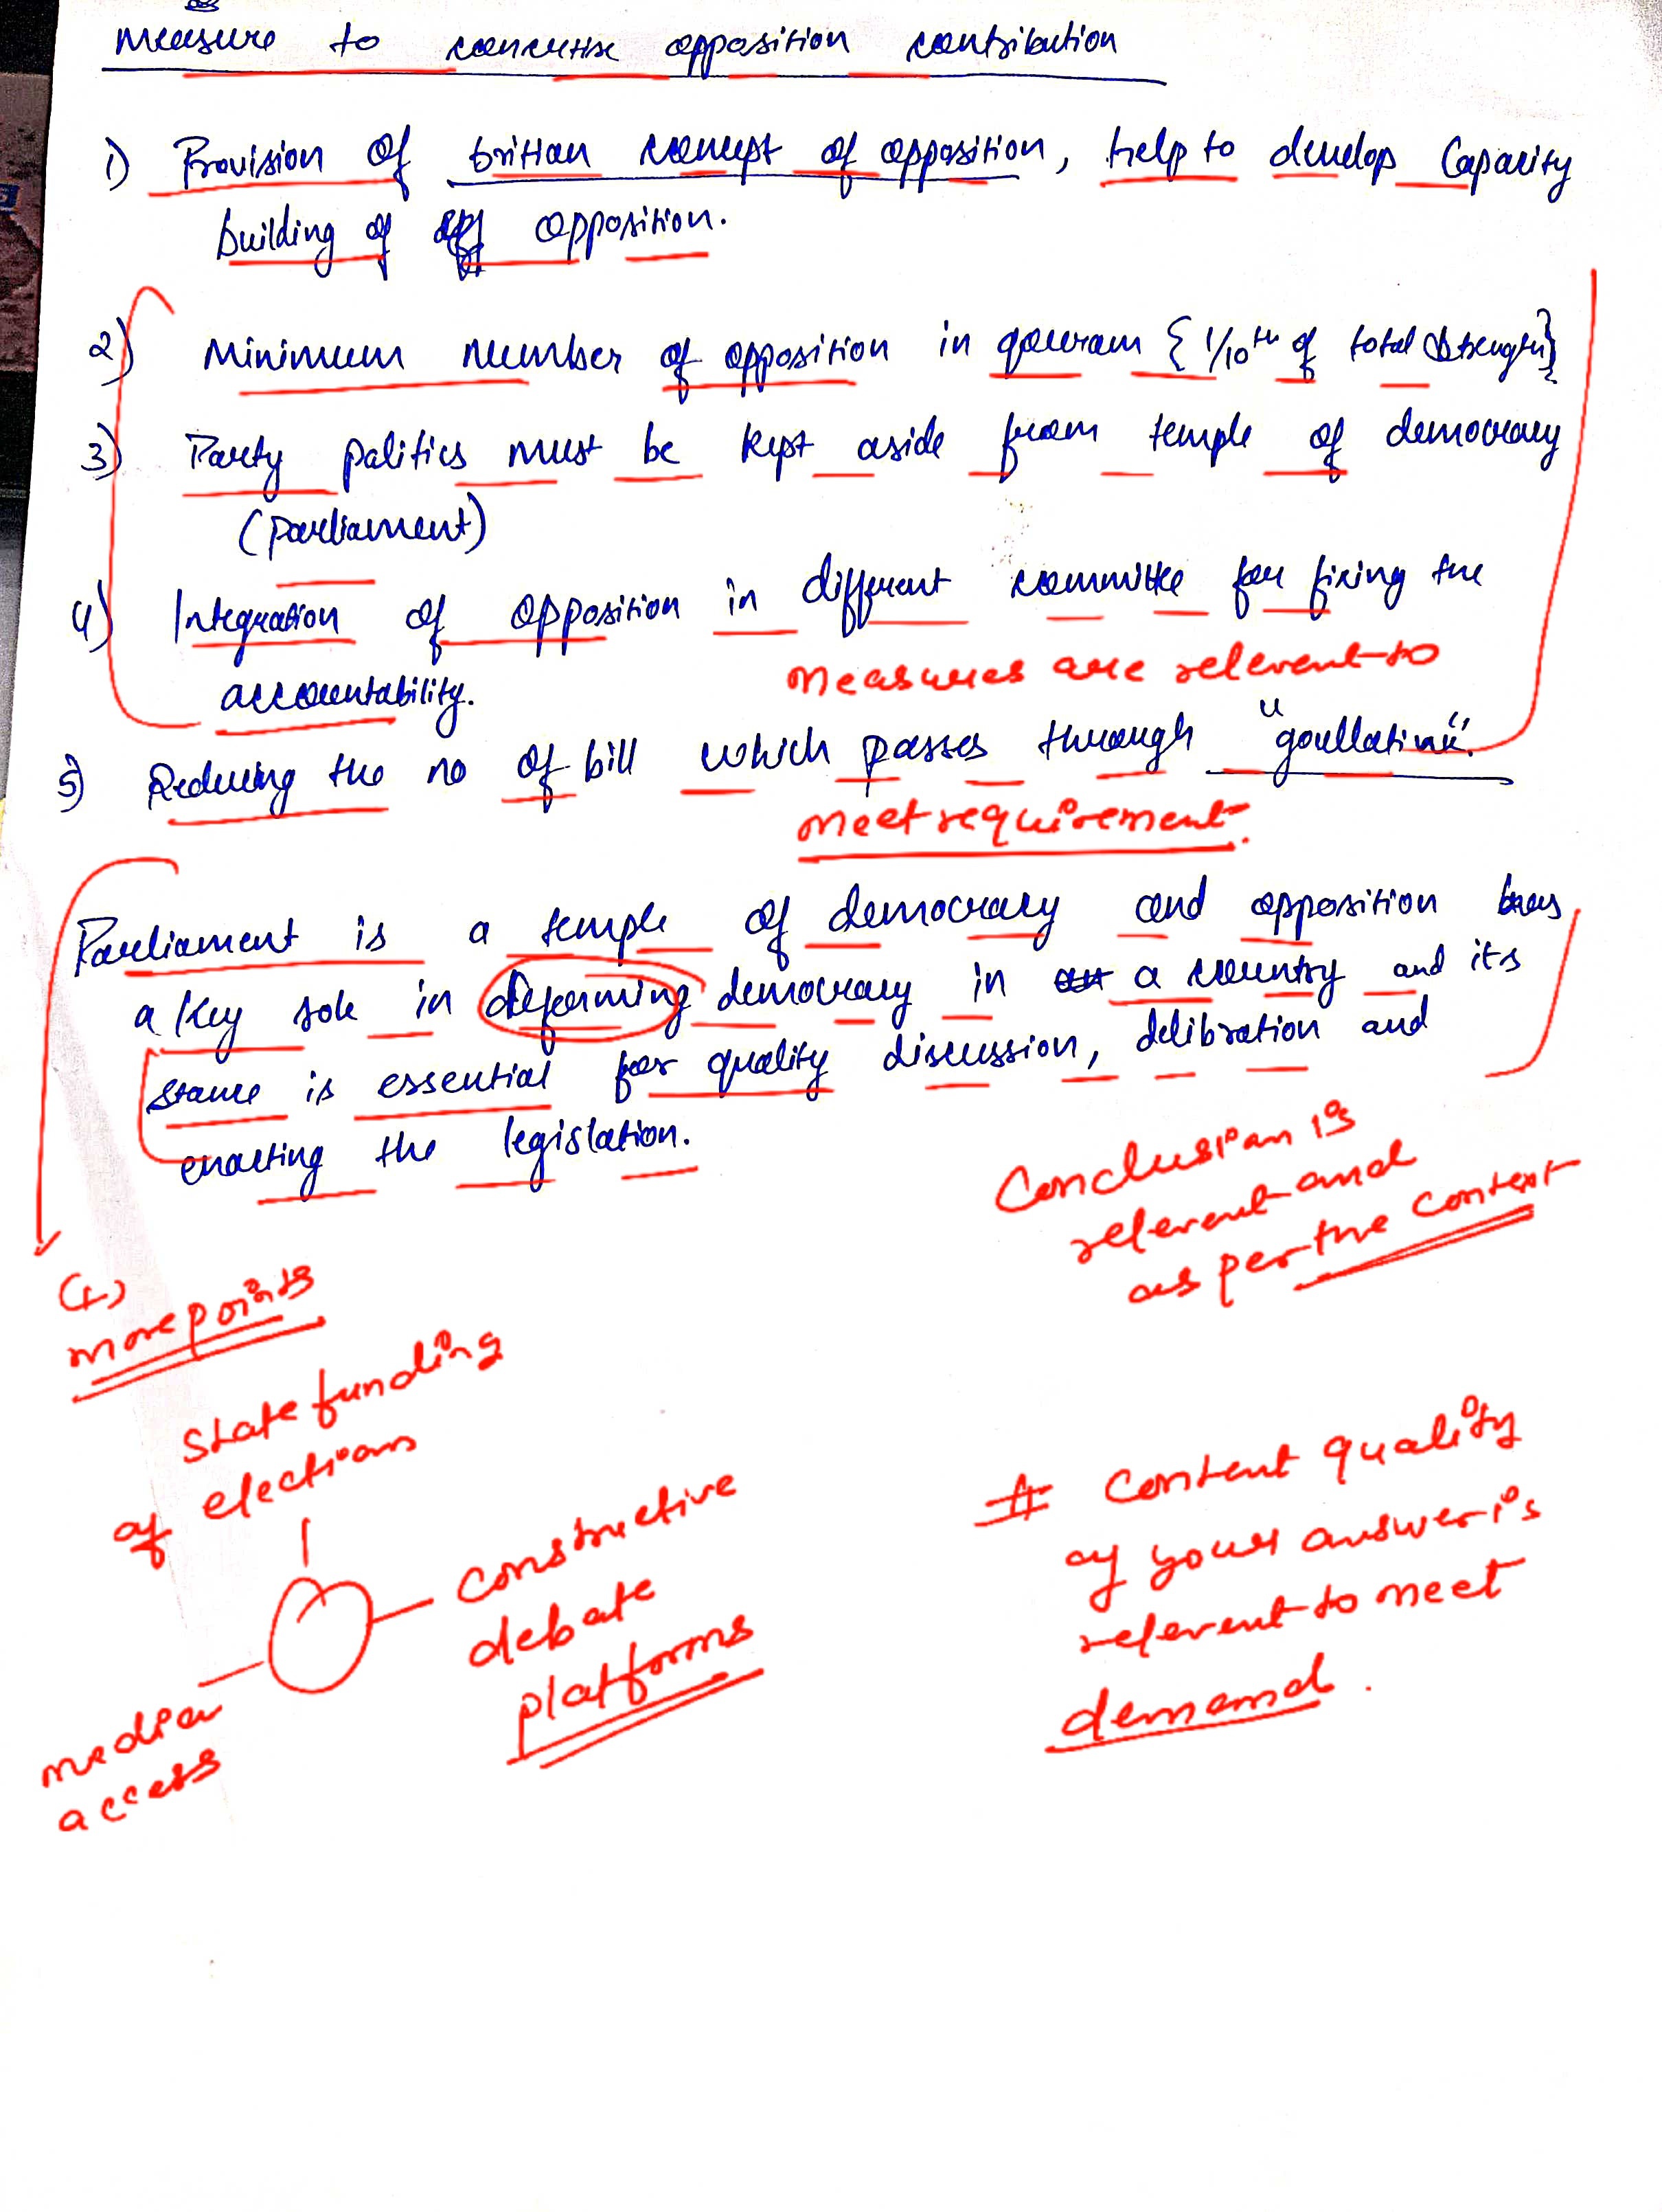 Measure to concertise opposition contribution
1) Provision of brittan concept of opposition, help to develop Capacity
building of opposition.
2) Minimum number of opposition in qouram {1/10th of total strength}
3) Party politics must be kept aside from temple of democracy
(Parliament)
4) Integration of opposition in different committe for fixing the
accountability.
Measures are relevent to
5) Reducing the no of bill which passes through "goullatine".
meet requirement.
Parliament is a temple of democracy and opposition has
a key role in deforming democracy in a country and its
stance is essential for quality discussion, delibration and
enacting the legislation.
Conclusion is
relevent and
as per the context
(+)
more points
State funding
of elections
constructive
debate
platforms
media
access
# Content quality
of your answer is
relevent to meet
demand.